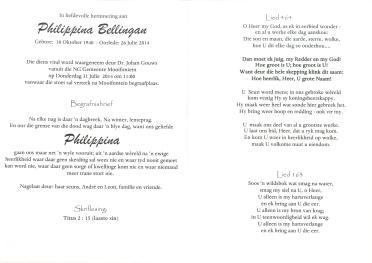 In liefdevolle herinnering aan
Philippina Bellingan
Gebore: 18 Oktober 1940 - Oorlede: 26 Julie 2014
Die diens word waargeneem deur Dr. Johan Gouws
vanuit die NG Gemeente Mooifontein
op Donderdag 31 Julie 2014 om 11:00
vanwaar die stoet sal vertrek na Mooifontein begraafplaas.
Begrafnisbrief
Na elke nag is daar 'n dagbreek, Na winter, lenteprag.
En oor die grense van die dood wag daar 'n blye dag, want ons geliefde
Philippina
gaan ons maar net 'n wyle vooruit; uit 'n aardse wêreld na 'n ewige
heerlikheid waar daar geen skeiding sal wees nie en waar tyd nooit gemeet
kan word nie, waar daar geen sorge of kwellinge kom nie en waar niemand
meer trane stort nie.
Nagelaat deur haar seuns, André en Leon, familie en vriende.
Skriflesing:
Titus 2 : 15 (laaste sin)
Lied 464
O Heer my God, as ek in eerbied wonder -
en al u werke elke dag aanskou:
Die son en maan, die aarde, sterre, wolke,
hoe U dit elke dag so onderhou.....
Dan moet ek juig, my Redder en my God!
Hoe groot is U; hoe groot is U!
Want deur die hele skepping klink dit saam:
Hoe heerlik, Heer, U grote Naam!
U Seun word mens; in ons gebroke wêreld
kom vestig Hy sy koningsheerskappy.
Hy maak weer heel wat sonde hier gebreek het.
Hy bring weer hoop en redding - ook vir my.
U maak ons deel van al u grootste werke.
U laat ons bid, Heer, dat u ryk mag kom.
En kom U weer in heerlikheid op wolke,
maak U volkome must a vriendom.
Lied 163
Soos 'n wildsbok wat smag na water,
smag my siel na U, o Heer.
U alleen is my hartsverlange
en ek bring aan U die eer.
U alleen is my bron van krag
in U teenwoordigheid wil ek wag.
U alleen is my hartsverlange
en ek bring aan U die eer.